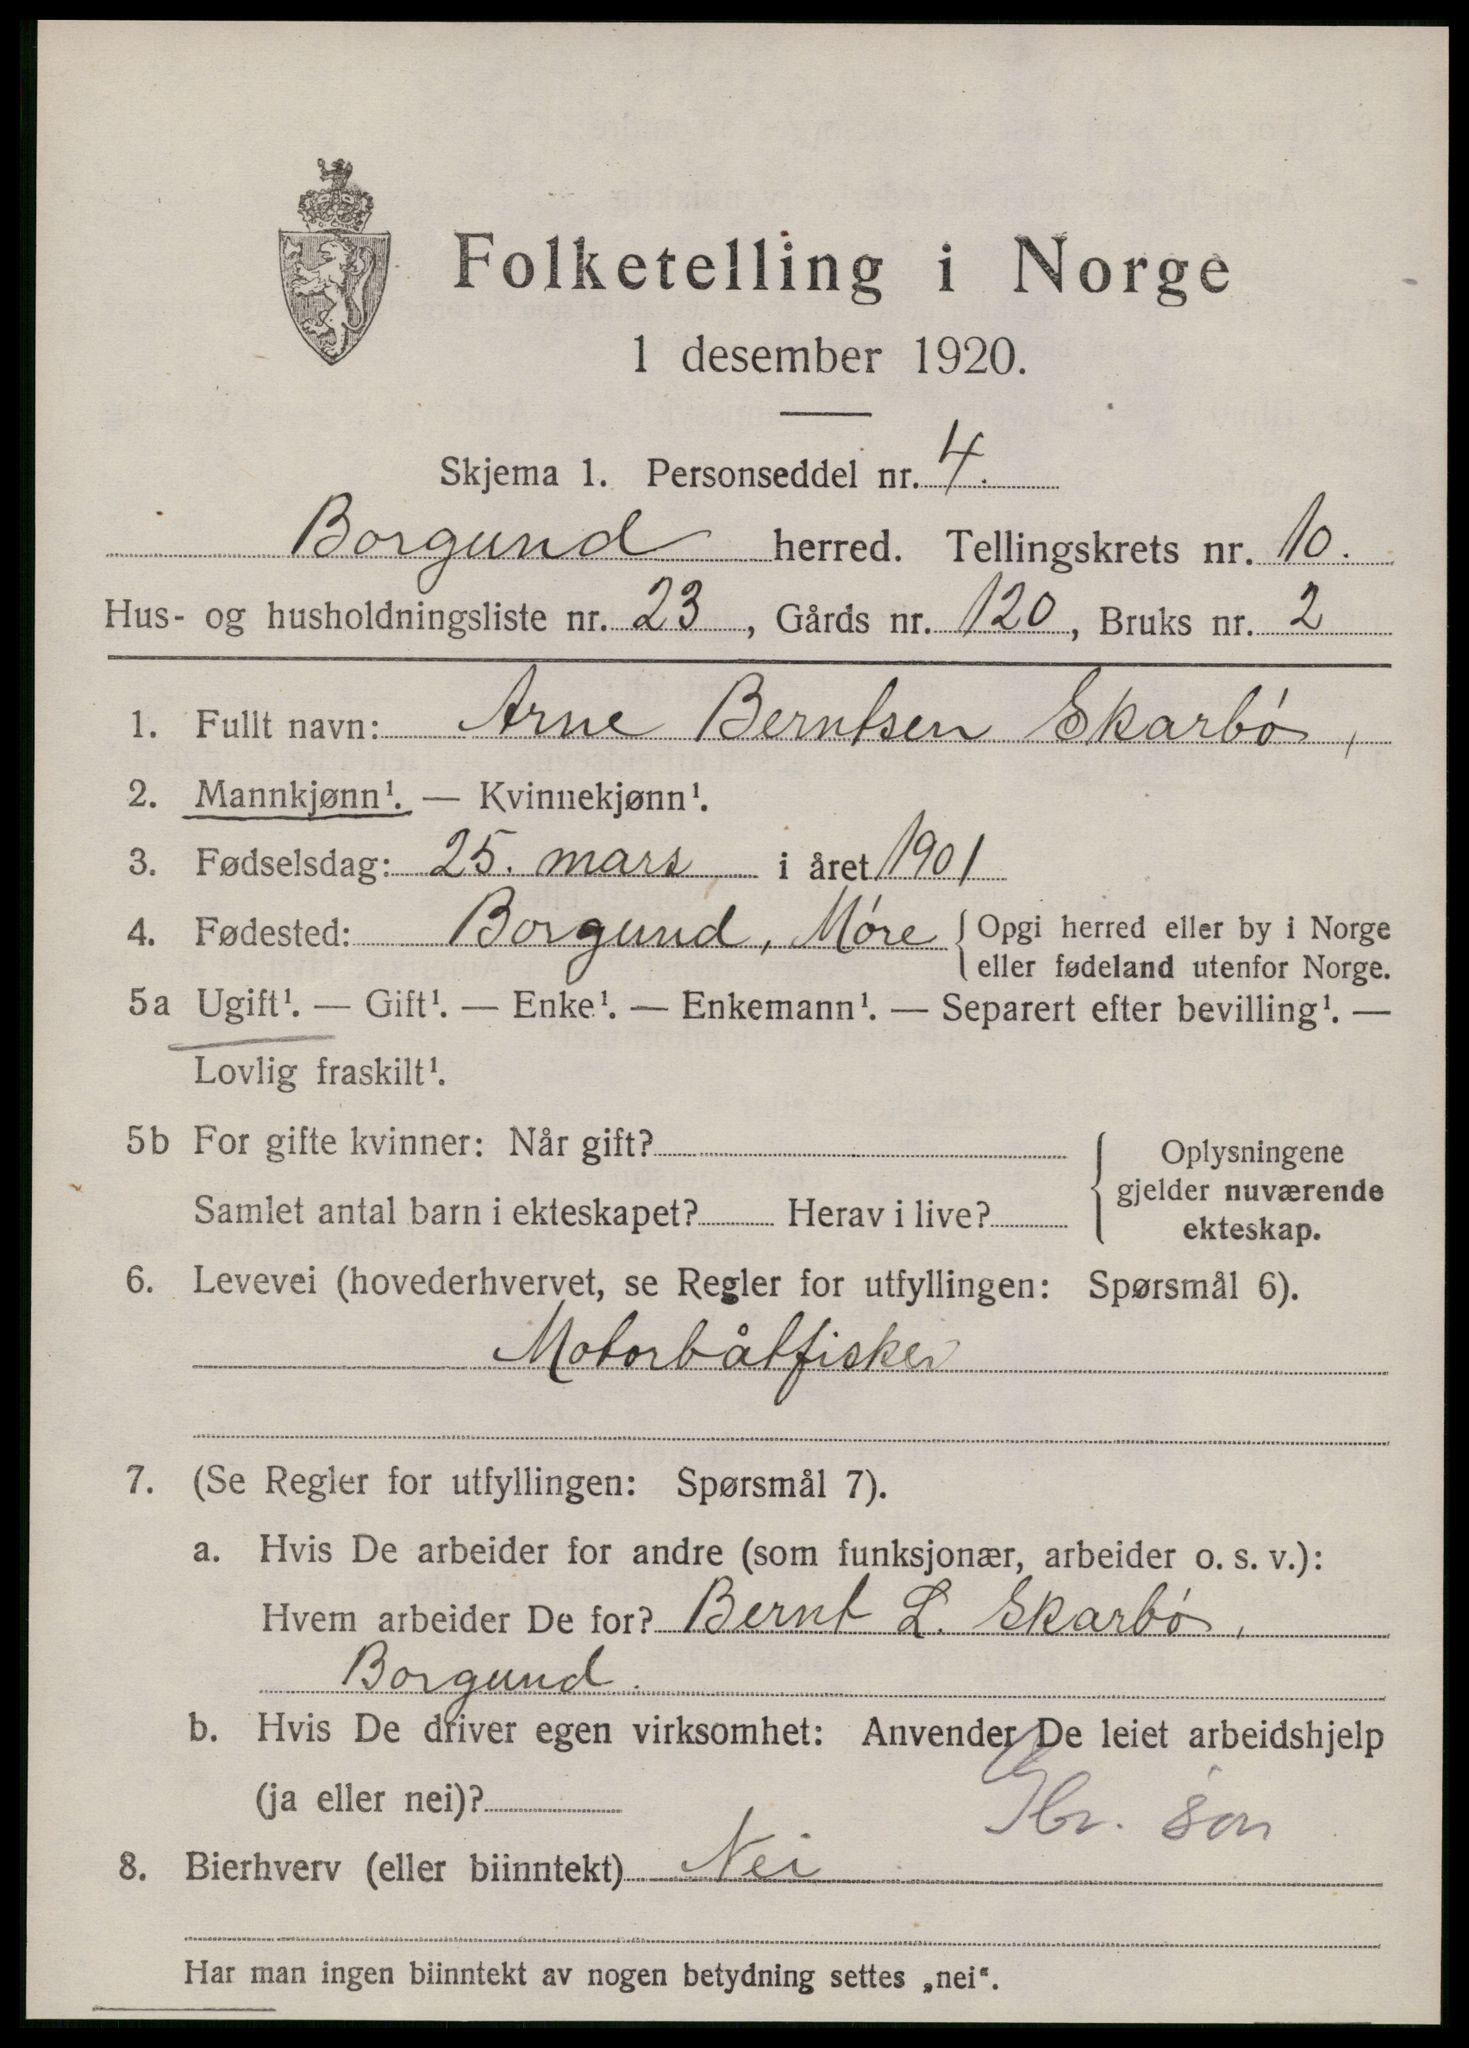 Folketelling i Norge
1 desember 1920.
Skjema 1. Personseddel nr. 4.
Borgund herred. Tellingskrets nr. 10.
Hus- og husholdningsliste nr. 23, Gårds nr. 120, Bruks nr. 2
1. Fullt navn: Arne Berntsen Skarbø,
2. Mannkjønn¹. — Kvinnekjønn¹.
3. Fødselsdag: 25. mars i året 1901
4. Fødested: Borgund, Møre { Opgi herred eller by i Norge
eller fødeland utenfor Norge.
5a Ugift¹. — Gift¹. — Enke¹. — Enkemann¹. — Separert efter bevilling¹. —
Lovlig fraskilt¹.
5b For gifte kvinner: Når gift?
Samlet antal barn i ekteskapet? Herav i live?
{ Oplysningene
gjelder nuværende
ekteskap.
6. Levevei (hovederhvervet, se Regler for utfyllingen: Spørsmål 6).
Motorbåtfisker
7. (Se Regler for utfyllingen: Spørsmål 7).
a. Hvis De arbeider for andre (som funksjonær, arbeider o. s. v.):
Hvem arbeider De for? Bernt L. Skarbø,
Borgund.
b. Hvis De driver egen virksomhet: Anvender De leiet arbeidshjelp
(ja eller nei)?
søn
8. Bierhverv (eller biinntekt) Nei
Har man ingen biinntekt av nogen betydning settes „nei“.